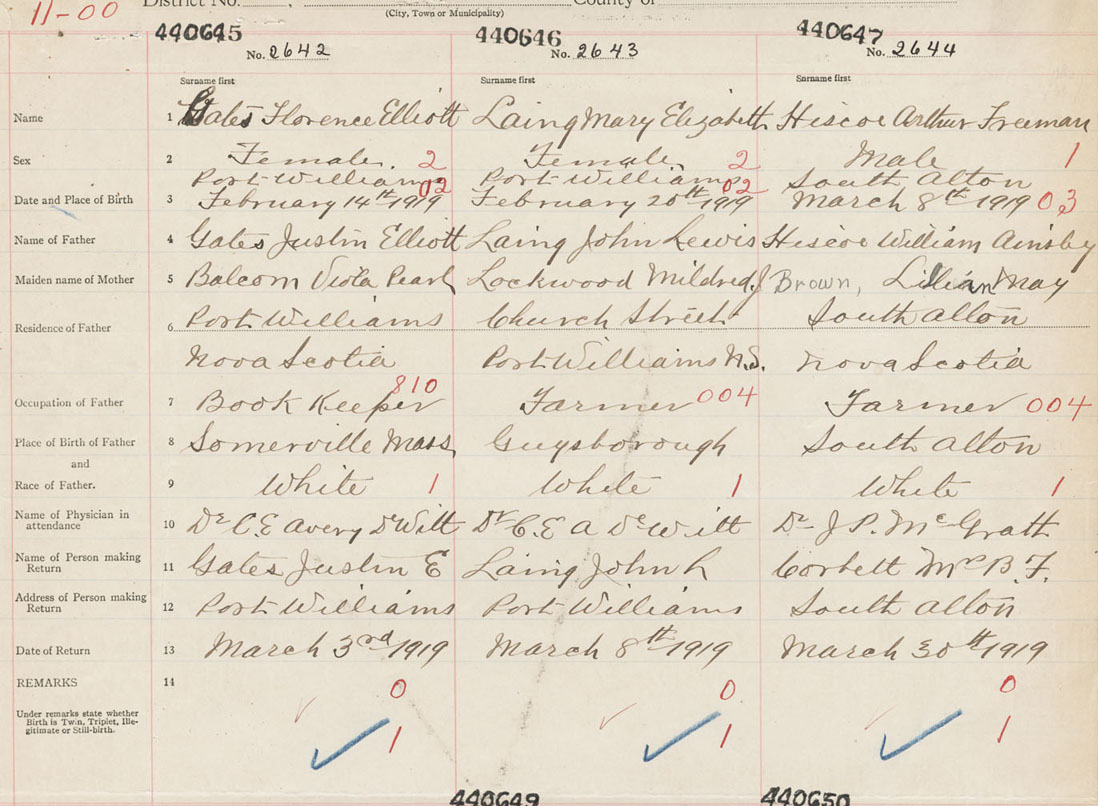 11-00
District No.
County of
(City, Town or Municipality)
440645 440646 440647
No. 2642 No. 2643 No. 2644
Surname first Surname first Surname first
Name 1 Gates Florence Elliott Laing Mary Elizabeth Hiscoe Arthur Freeman
Sex 2 Female. 2 Female, 2 Male 1
Port Williams 02 Port Williams 02 South Alton
Date and Place of Birth 3 February 14th 1919 February 20th 1919 March 8th 1919 03
Name of Father 4 Gates Justin Elliott Laing John Lewis Hiscoe William Ainsley
Maiden name of Mother 5 Balcom Viola Pearl Lockwood Mildred J Brown, Lilian May
Residence of Father 6 Port Williams Church Street South Alton
Nova Scotia Port Williams N.S. Nova Scotia
810
Occupation of Father 7 Book Keeper Farmer 004 Farmer 004
Place of Birth of Father 8 Somerville Mass, Guysborough South Alton
and
Race of Father. 9 White 1 White 1 White 1
Name of Physician in
attendance 10 Dr C.E Avery DeWitt Dr C.E A DeWitt Dr J P. McGrath
Name of Person making
Return 11 Gates Justin E Laing John L Corbett Mrs B. F.
Address of Person making
Return 12 Port Williams Port Williams South Alton
Date of Return 13 March 3rd 1919 March 8th 1919 March 30th 1919
REMARKS 14 0 0 0
Under remarks state whether
Birth is Twin, Triplet, Ille-
gitimate or Still-birth. 1 1 1
440649 440650